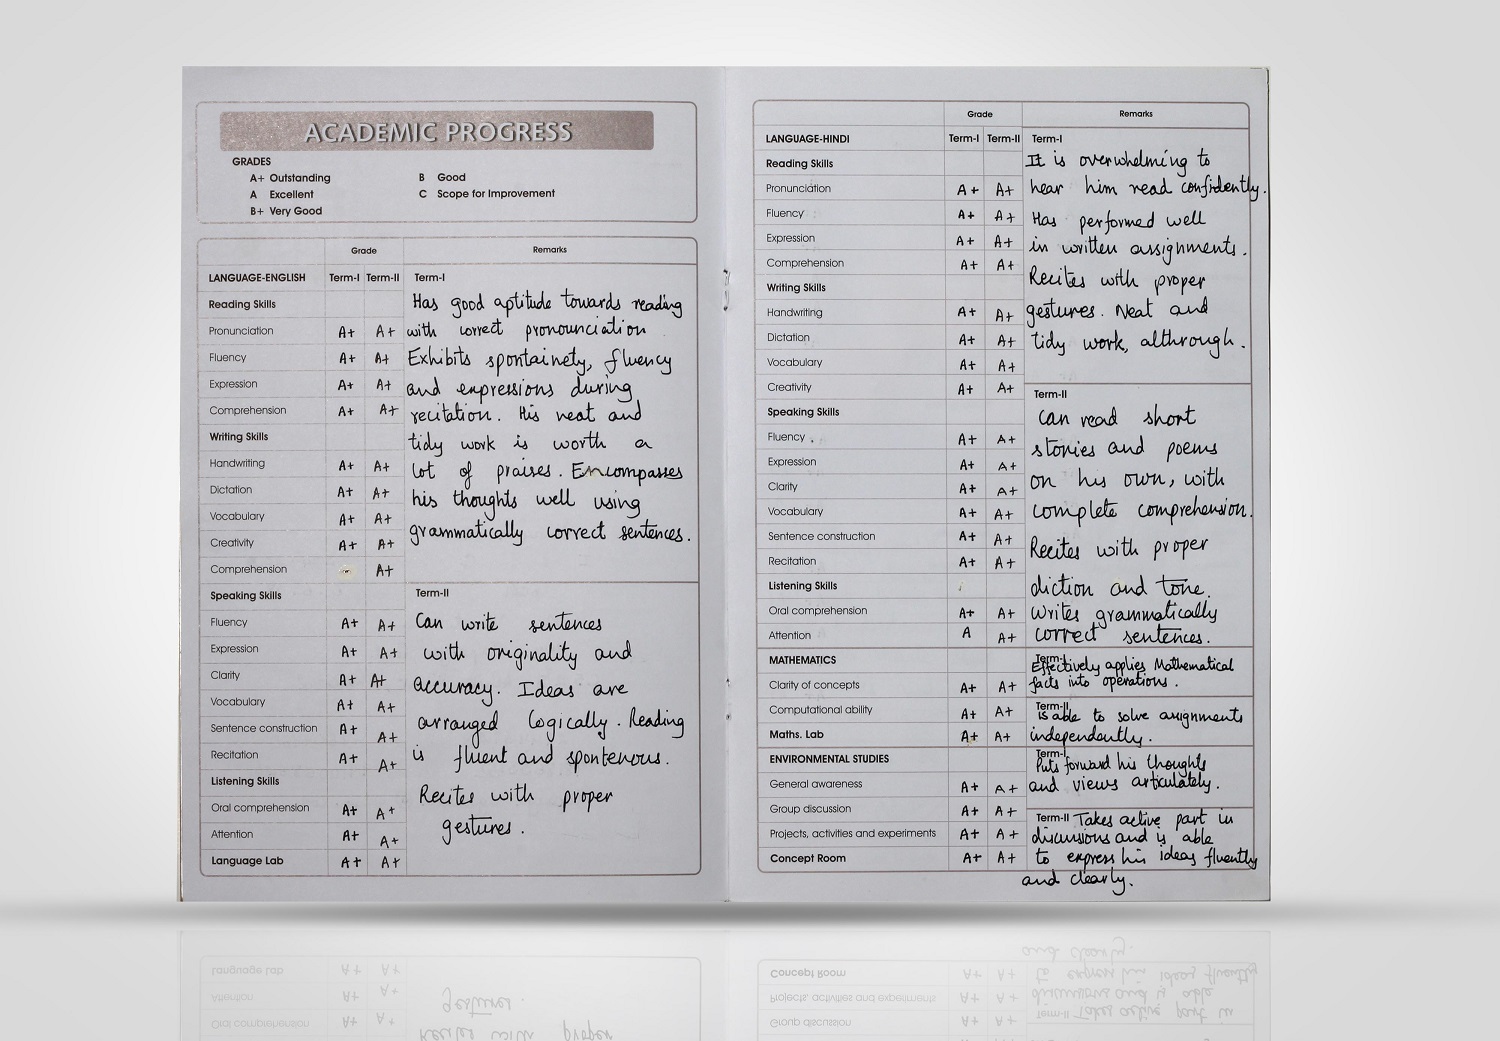 ACADEMIC PROGRESS
GRADES
A+ Outstanding
A Excellent
B+ Very Good
B Good
C Scope for Improvement
Grade Remarks
LANGUAGE-ENGLISH Term-I Term-II
Reading Skills
Pronunciation A+ A+
Fluency A+ A+
Expression A+ A+
Comprehension A+ A+
Writing Skills
Handwriting A+ A+
Dictation A+ A+
Vocabulary A+ A+
Creativity A+ A+
Comprehension - A+
Speaking Skills
Fluency A+ A+
Expression A+ A+
Clarity A+ A+
Vocabulary A+ A+
Sentence construction A+ A+
Recitation A+ A+
Listening Skills
Oral comprehension A+ A+
Attention A+ A+
Language Lab A+ A+
Term-I
Has good aptitude towards reading
with correct pronounciation
Exhibits spontainety, fluency
and expressions during
recitation. His neat and
tidy work is worth a
lot of praises. Encompasses
his thoughts well using
grammatically correct sentences.
Term-II
Can write sentences
with originality and
accuracy. Ideas are
arranged logically. Reading
is fluent and spontenous.
Recites with proper
gestures.
Grade Remarks
LANGUAGE-HINDI Term-I Term-II
Reading Skills
Pronunciation A+ A+
Fluency A+ A+
Expression A+ A+
Comprehension A+ A+
Writing Skills
Handwriting A+ A+
Dictation A+ A+
Vocabulary A+ A+
Creativity A+ A+
Speaking Skills
Fluency A+ A+
Expression A+ A+
Clarity A+ A+
Vocabulary A+ A+
Sentence construction A+ A+
Recitation A+ A+
Listening Skills
Oral comprehension A+ A+
Attention A A+
MATHEMATICS
Clarity of concepts A+ A+
Computational ability A+ A+
Maths. Lab A+ A+
ENVIRONMENTAL STUDIES
General awareness A+ A+
Group discussion A+ A+
Projects, activities and experiments A+ A+
Concept Room A+ A+
Term-I
It is overwhelming to
hear him read confidently.
Has performed well
in written assignments.
Recites with proper
gestures. Neat and
tidy work, althrough.
Term-II
Can read short
stories and poems
on his own, with
complete comprehension.
Recites with proper
diction and tone.
Writes grammatically
correct sentences.
Term-I
Effectively applies Mathematical
facts into operations.
Term-II
is able to solve assignments
independently.
Term-I
Puts forward his thoughts
and views articulately.
Term-II Takes active part in
discussions and is able
to express his ideas fluently
and clearly.